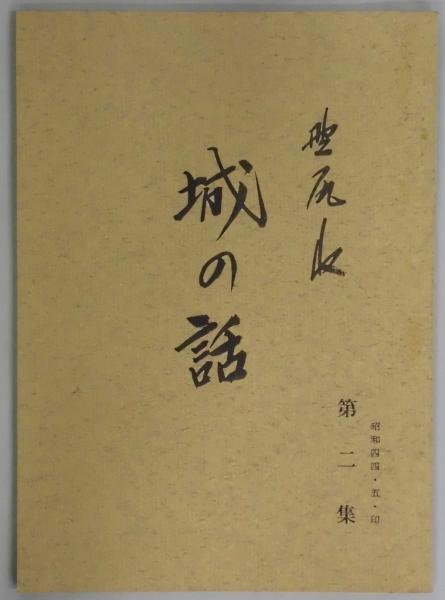 城の話
第二集
昭和四四・五・印